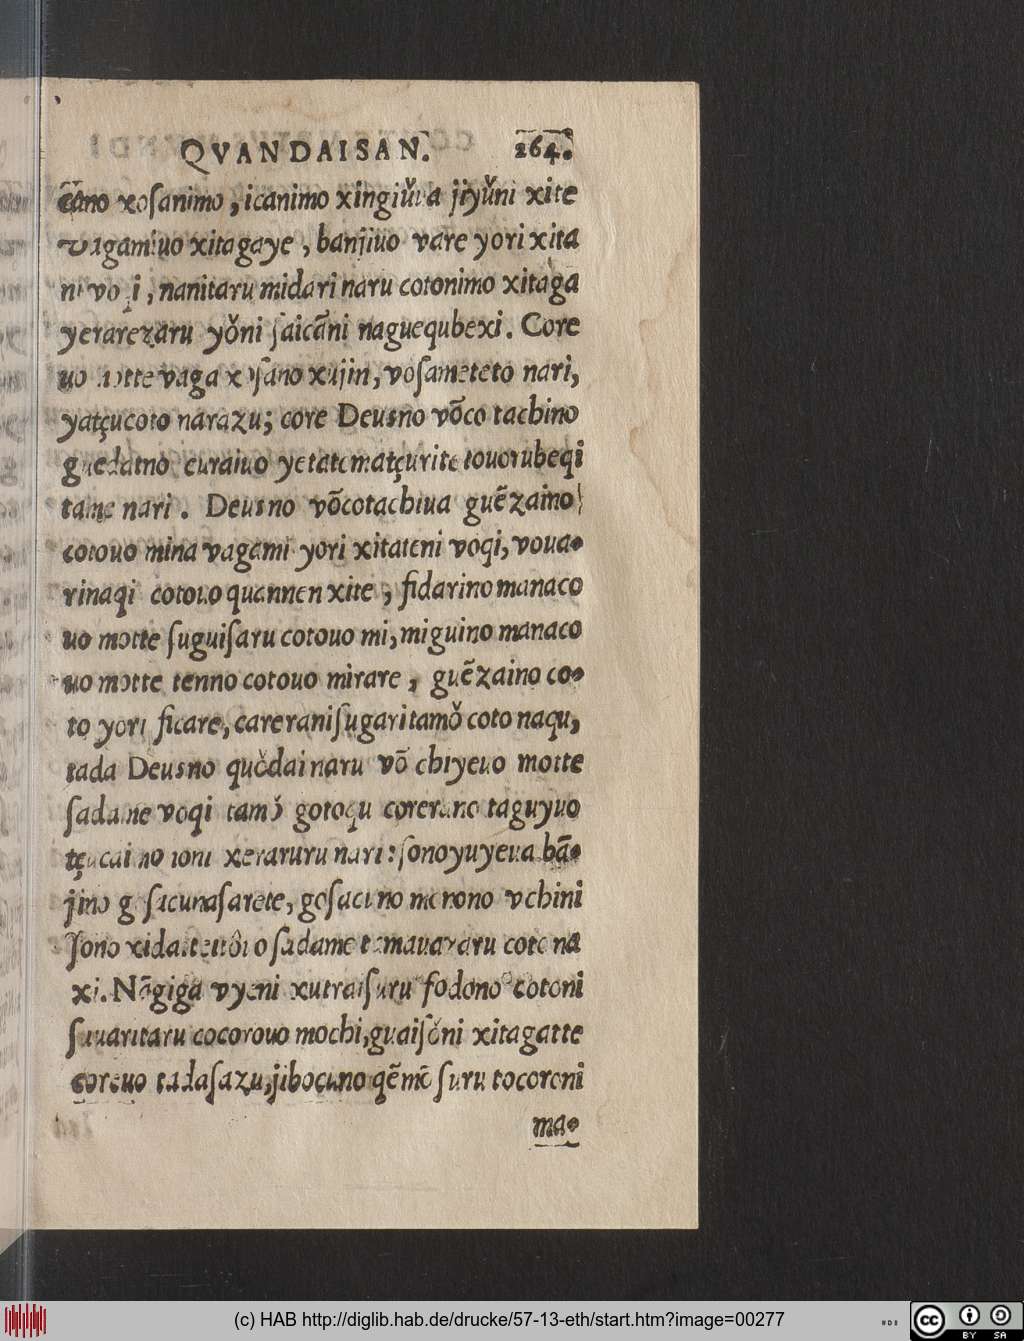 QVANDAISAN. 264.
cãno xoſanimo, icanimo xingiǔua jiyǔni xite
vagamiuo xitagaye, banjiuo vare yori xita
ni voqi, nanitaru midari naru cotonimo xitaga
yerarezaru yǒni ſaicãni naguequbexi. Core
uo motte vaga xoſano xujin, voſameteto nari,
yatçucoto narazu; core Deusno võco tachino
guedatno curaiuo yetatematçurite touorubeqi
tame nari. Deusno võcotachiua guẽzaino
cotouo mina vagami yori xitateni voqi, voua-
rinaqi cotouo quannen xite, fidarino manaco
uo motte ſuguiſaru cotouo mi, miguino manaco
uo motte tenno cotouo mirare, guẽzaino co-
to yori ficare, carerani ſugaritamǒ coto naqu,
tada Deusno quǒdai naru võ chiyeuo motte
ſadame voqi tamǒ gotoqu corerano taguyuo
tçucai no toni xeraruru nari: ſono yuyeua bã-
jino go ſacunaſarete, goſacuno monono vchini
ſono xidai uo ſadame tamauazaru coto na
xi. Nãgiga vyeni xutraiſuru fodono cotoni
ſuuaritaru cocorouo mochi, guaiſǒni xitagatte
coreuo tadaſazu, jibocuno qẽmõ ſuru tocoroni
ma-
(c) HAB http://diglib.hab.de/drucke/57-13-eth/start.htm?image=00277
cc BY SA